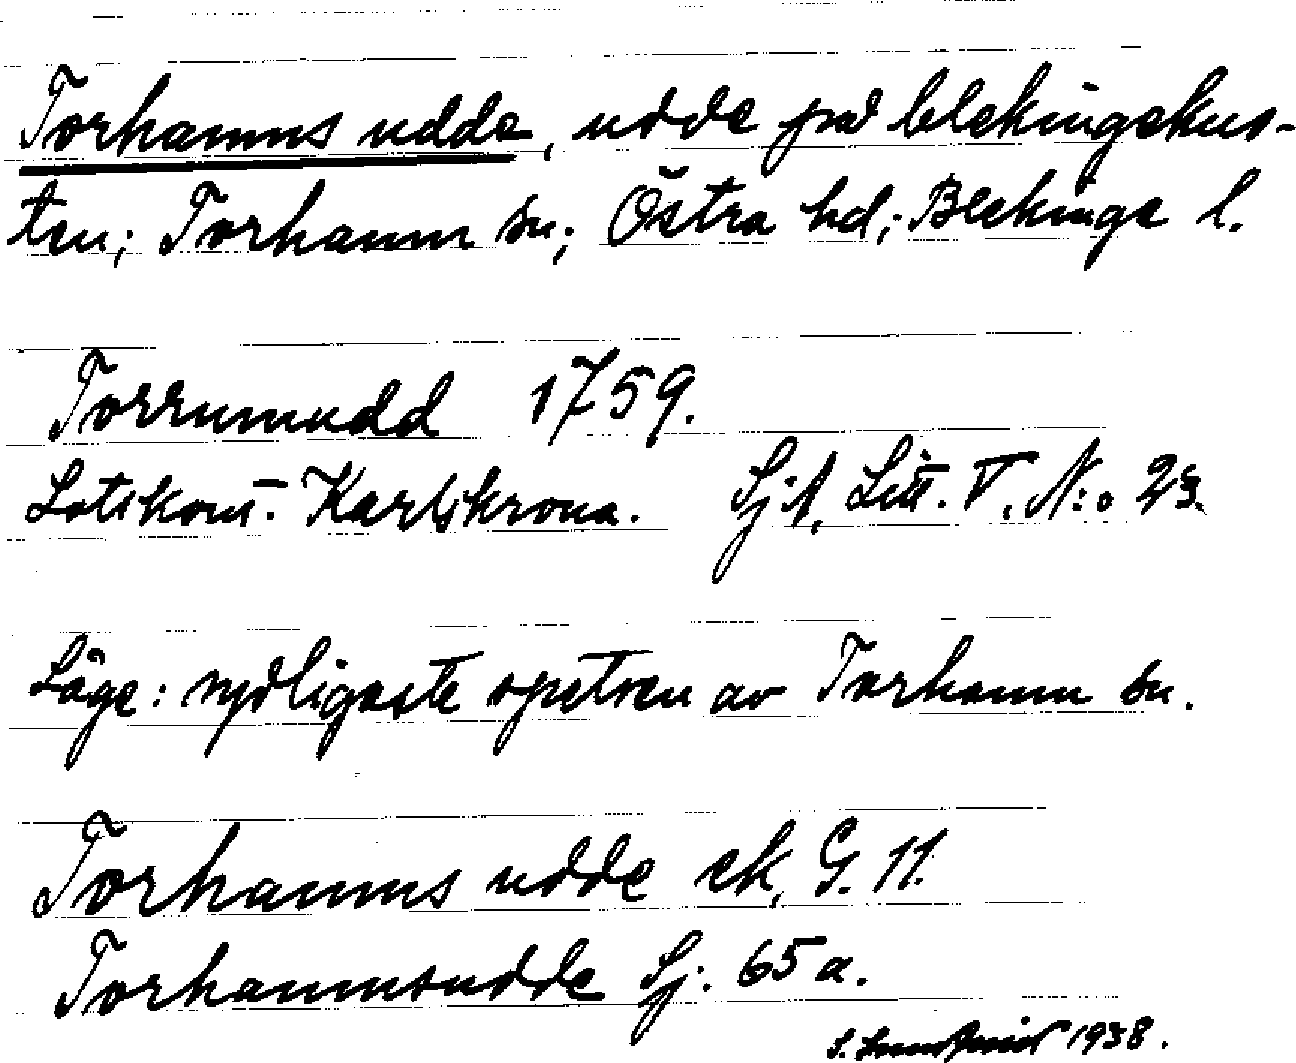 Torhamns udde, udde på blekingekus-
ten; Torhamn sn; Östra hd; Blekinge l.
Torrumudd 1759.
Lotskont. Karlskrona. Sj.A. Litt. V. N:o 23.
Läge: sydligaste spetsen av Torhamn sn.
Torhamns udde ek. G. 11.
Torhamnsudde Sj. 65 a.
S. 1938.